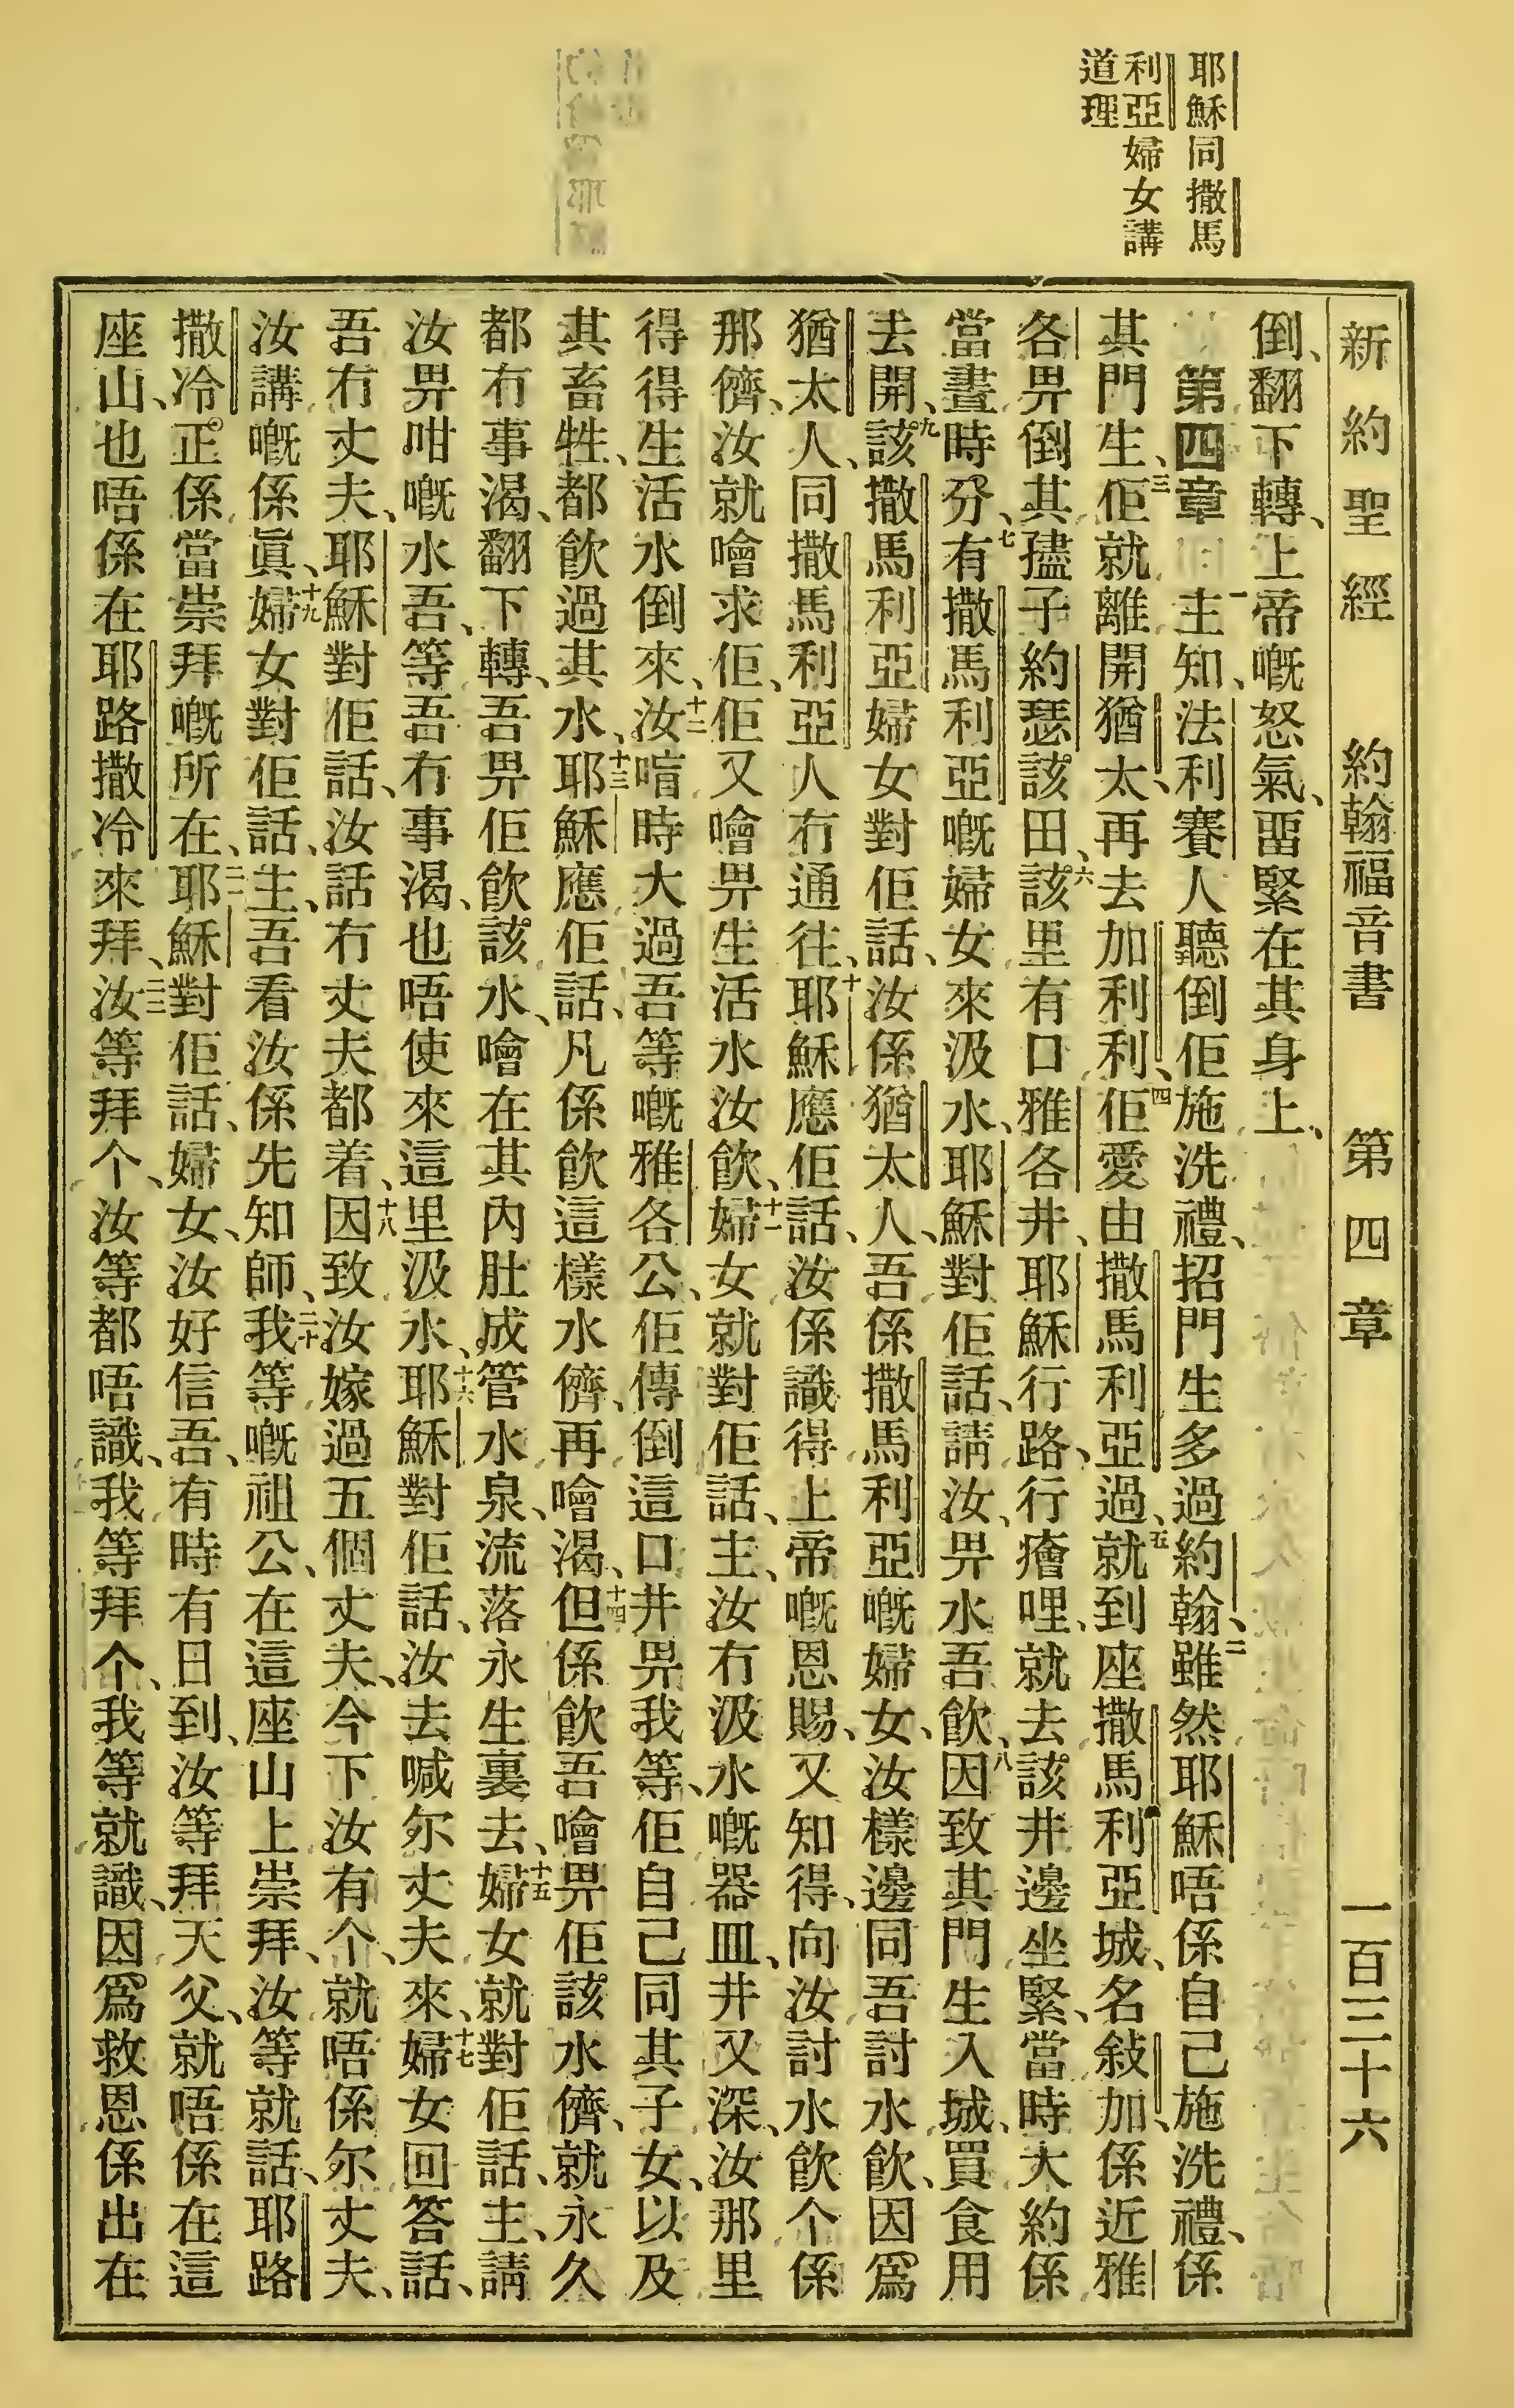 耶穌同撒馬
利亞婦女講
道理
新約聖經 約翰福音書 第四章 一百三十六
倒、翻下轉、上帝嘅怒氣、畱緊在其身上、
第四章 一主知、法利賽人聽倒佢施洗禮、招門生多過約翰、二雖然耶穌唔係自己施洗禮、係
其門生、三佢就離開猶太、再去加利利、四佢愛由撒馬利亞過、五就到座撒馬利亞城、名敍加、係近雅
各畀倒其孻子約瑟該田、六該里有口雅各井、耶穌行路、行癐哩、就去該井邊坐緊、當時大約係
當晝時分、七有撒馬利亞嘅婦女來汲水、耶穌對佢話、請汝、畀水吾飲、八因致其門生入城、買食用
去開、九該撒馬利亞婦女對佢話、汝係猶太人、吾係撒馬利亞嘅婦女、汝樣邊同吾討水飲、因爲
猶太人、同撒馬利亞人冇通往、十耶穌應佢話、汝係識得上帝嘅恩賜、又知得、向汝討水飲个係
那儕、汝就噲求佢、佢又噲畀生活水汝飲、十一婦女就對佢話、主、汝冇汲水嘅器皿、井又深、汝那里
得得生活水倒來、十二汝㗒時大過吾等嘅雅各公、佢傳倒這口井畀我等、佢自己同其子女、以及
其畜牲、都飲過其水、十三耶穌應佢話、凡係飲這樣水儕、再噲渴、十四但係飲吾噲畀佢該水儕、就永久
都冇事渴、翻下轉、吾畀佢飲該水、噲在其內肚成管水泉、流落永生裏去、十五婦女就對佢話、主、請
汝畀咁嘅水吾、等吾冇事渴、也唔使來這里汲水、十六耶穌對佢話、汝去喊尔丈夫來、十七婦女回答話、
吾冇丈夫、耶穌對佢話、汝話冇丈夫都着、十八因致汝嫁過五個丈夫、今下汝有个、就唔係尔丈夫、
汝講嘅係眞、十九婦女對佢話、主、吾看汝係先知師、二十我等嘅祖公、在這座山上崇拜、汝等就話、耶路
撒冷。正係當崇拜嘅所在、二一耶穌對佢話、婦女、汝好信吾、有時有日到、汝等拜天父、就唔係在這
座山、也唔係在耶路撒冷來拜、二二汝等拜个、汝等都唔識、我等拜个、我等就識、因爲救恩係出在